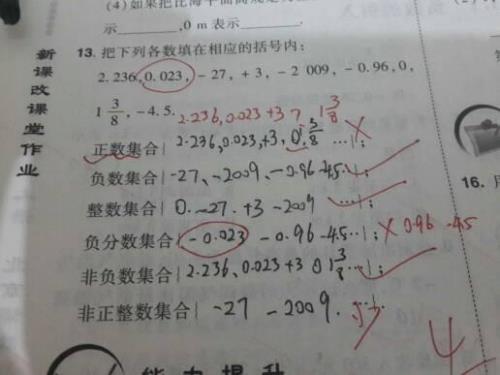 (4)如果把比海平面高
示____,0 m表示____.
13. 把下列各数填在相应的括号内：
2.236,0.023,－27,＋3,－2 009,－0.96,0,
1 3/8,－4.5.
2.236,0.023 +3 1 3/8
正数集合{2.236,0.023,+3, 3/8 …};
负数集合{-27、-2009、-0.96 -4.5…};
整数集合{0. -27. +3 -2009 …};
负分数集合{-0.023 -0.96 -4.5…}; 0.96 -4.5
非负数集合{2.236,0.023 +3 0 1 3/8 …};
非正整数集合{-27 -2009.
新课改课堂作业
16.
能力提升